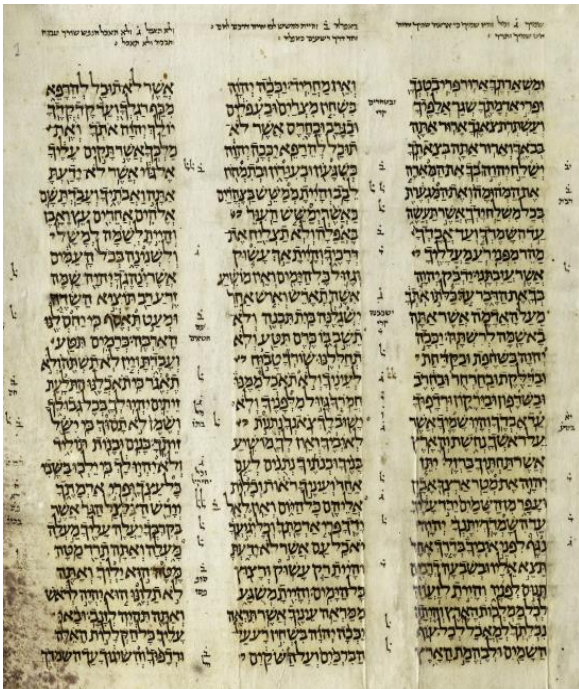 ומשארתך ארור פרי בטנך
ופרי אדמתך שגר אלפיך
ועשתרת צאנך ארור אתה
בבאך וארור אתה בצאתך
ישלח יהוה בך את המארה
את המהומה ואת המגערת
בכל משלח ידך אשר תעשה
עד השמדך ועד אבדך
מהר מפני רע מעלליך
אשר עזבתני ידבק יהוה
בך את הדבר עד כלתו אתך
מעל האדמה אשר אתה
בא שמה לרשתה יככה
יהוה בשחפת ובקדחת
ובדלקת ובחרחר ובחרב
ובשדפון ובירקון ורדפוך
עד אבדך והיו שמיך אשר
על ראשך נחשת והארץ
אשר תחתיך ברזל יתן
יהוה את מטר ארצך אבק
ועפר מן השמים ירד עליך
עד השמדך יתנך יהוה
נגף לפני איביך בדרך אחד
תצא אליו ובשבעה דרכים
תנוס לפניו והיית לזעוה
לכל ממלכות הארץ והיתה
נבלתך למאכל לכל עוף
השמים ולבהמת הארץ
ואין מחריד יככה יהוה
בשחין מצרים ובעפלים
ובגרב ובחרס אשר לא
תוכל להרפא יככה יהוה
בשגעון ובעורון ובתמהון
לבב והיית ממשש בצהרים
כאשר ימשש העור
באפלה ולא תצליח את
דרכיך והיית אך עשוק
וגזול כל הימים ואין מושיע
אשה תארש ואיש אחר
ישגלנה בית תבנה ולא
תשב בו כרם תטע ולא
תחללנו שורך טבוח
לעיניך ולא תאכל ממנו
חמרך גזול מלפניך ולא
ישוב לך צאנך נתנות
לאיביך ואין לך מושיע
בניך ובנתיך נתנים לעם
אחר ועיניך ראות וכלות
אליהם כל היום ואין לאל
ידך פרי אדמתך וכל יגיעך
יאכל עם אשר לא ידעת
והיית רק עשוק ורצוץ
כל הימים והיית משגע
ממראה עיניך אשר תראה
יככה יהוה בשחין רע על
הברכים ועל השקים
אשר לא תוכל להרפא
מכף רגלך ועד קדקדך
יולך יהוה אתך ואת
מלכך אשר תקים עליך
אל גוי אשר לא ידעת
אתה ואבתיך ועבדת שם
אלהים אחרים עץ ואבן
והיית לשמה למשל
ולשנינה בכל העמים
אשר ינהגך יהוה שמה
זרע רב תוציא השדה
ומעט תאסף כי יחסלנו
הארבה כרמים תטע
ועבדת ויין לא תשתה ולא
תאגר כי תאכלנו התלעת
זיתים יהיו לך בכל גבולך
ושמן לא תסוך כי ישל
זיתיך בנים ובנות תוליד
ולא יהיו לך כי ילכו בשבי
כל עצך ופרי אדמתך
יירש הצלצל הגר אשר
בקרבך יעלה עליך מעלה
מעלה ואתה תרד מטה
מטה הוא ילוך ואתה
לא תלונו הוא יהיה לראש
ואתה תהיה לזנב ובאו
עליך כל הקללות האלה
ורדפוך והשיגוך עד השמדך